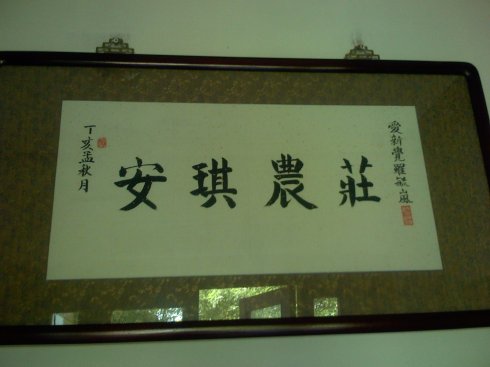 丁亥孟秋月
安琪農莊
愛新覺羅毓嵐